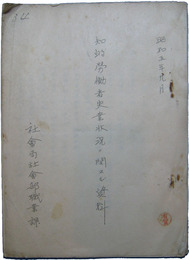 昭和五年十月
知識労働者失業状況ニ関スル資料
社会局社会部職業課